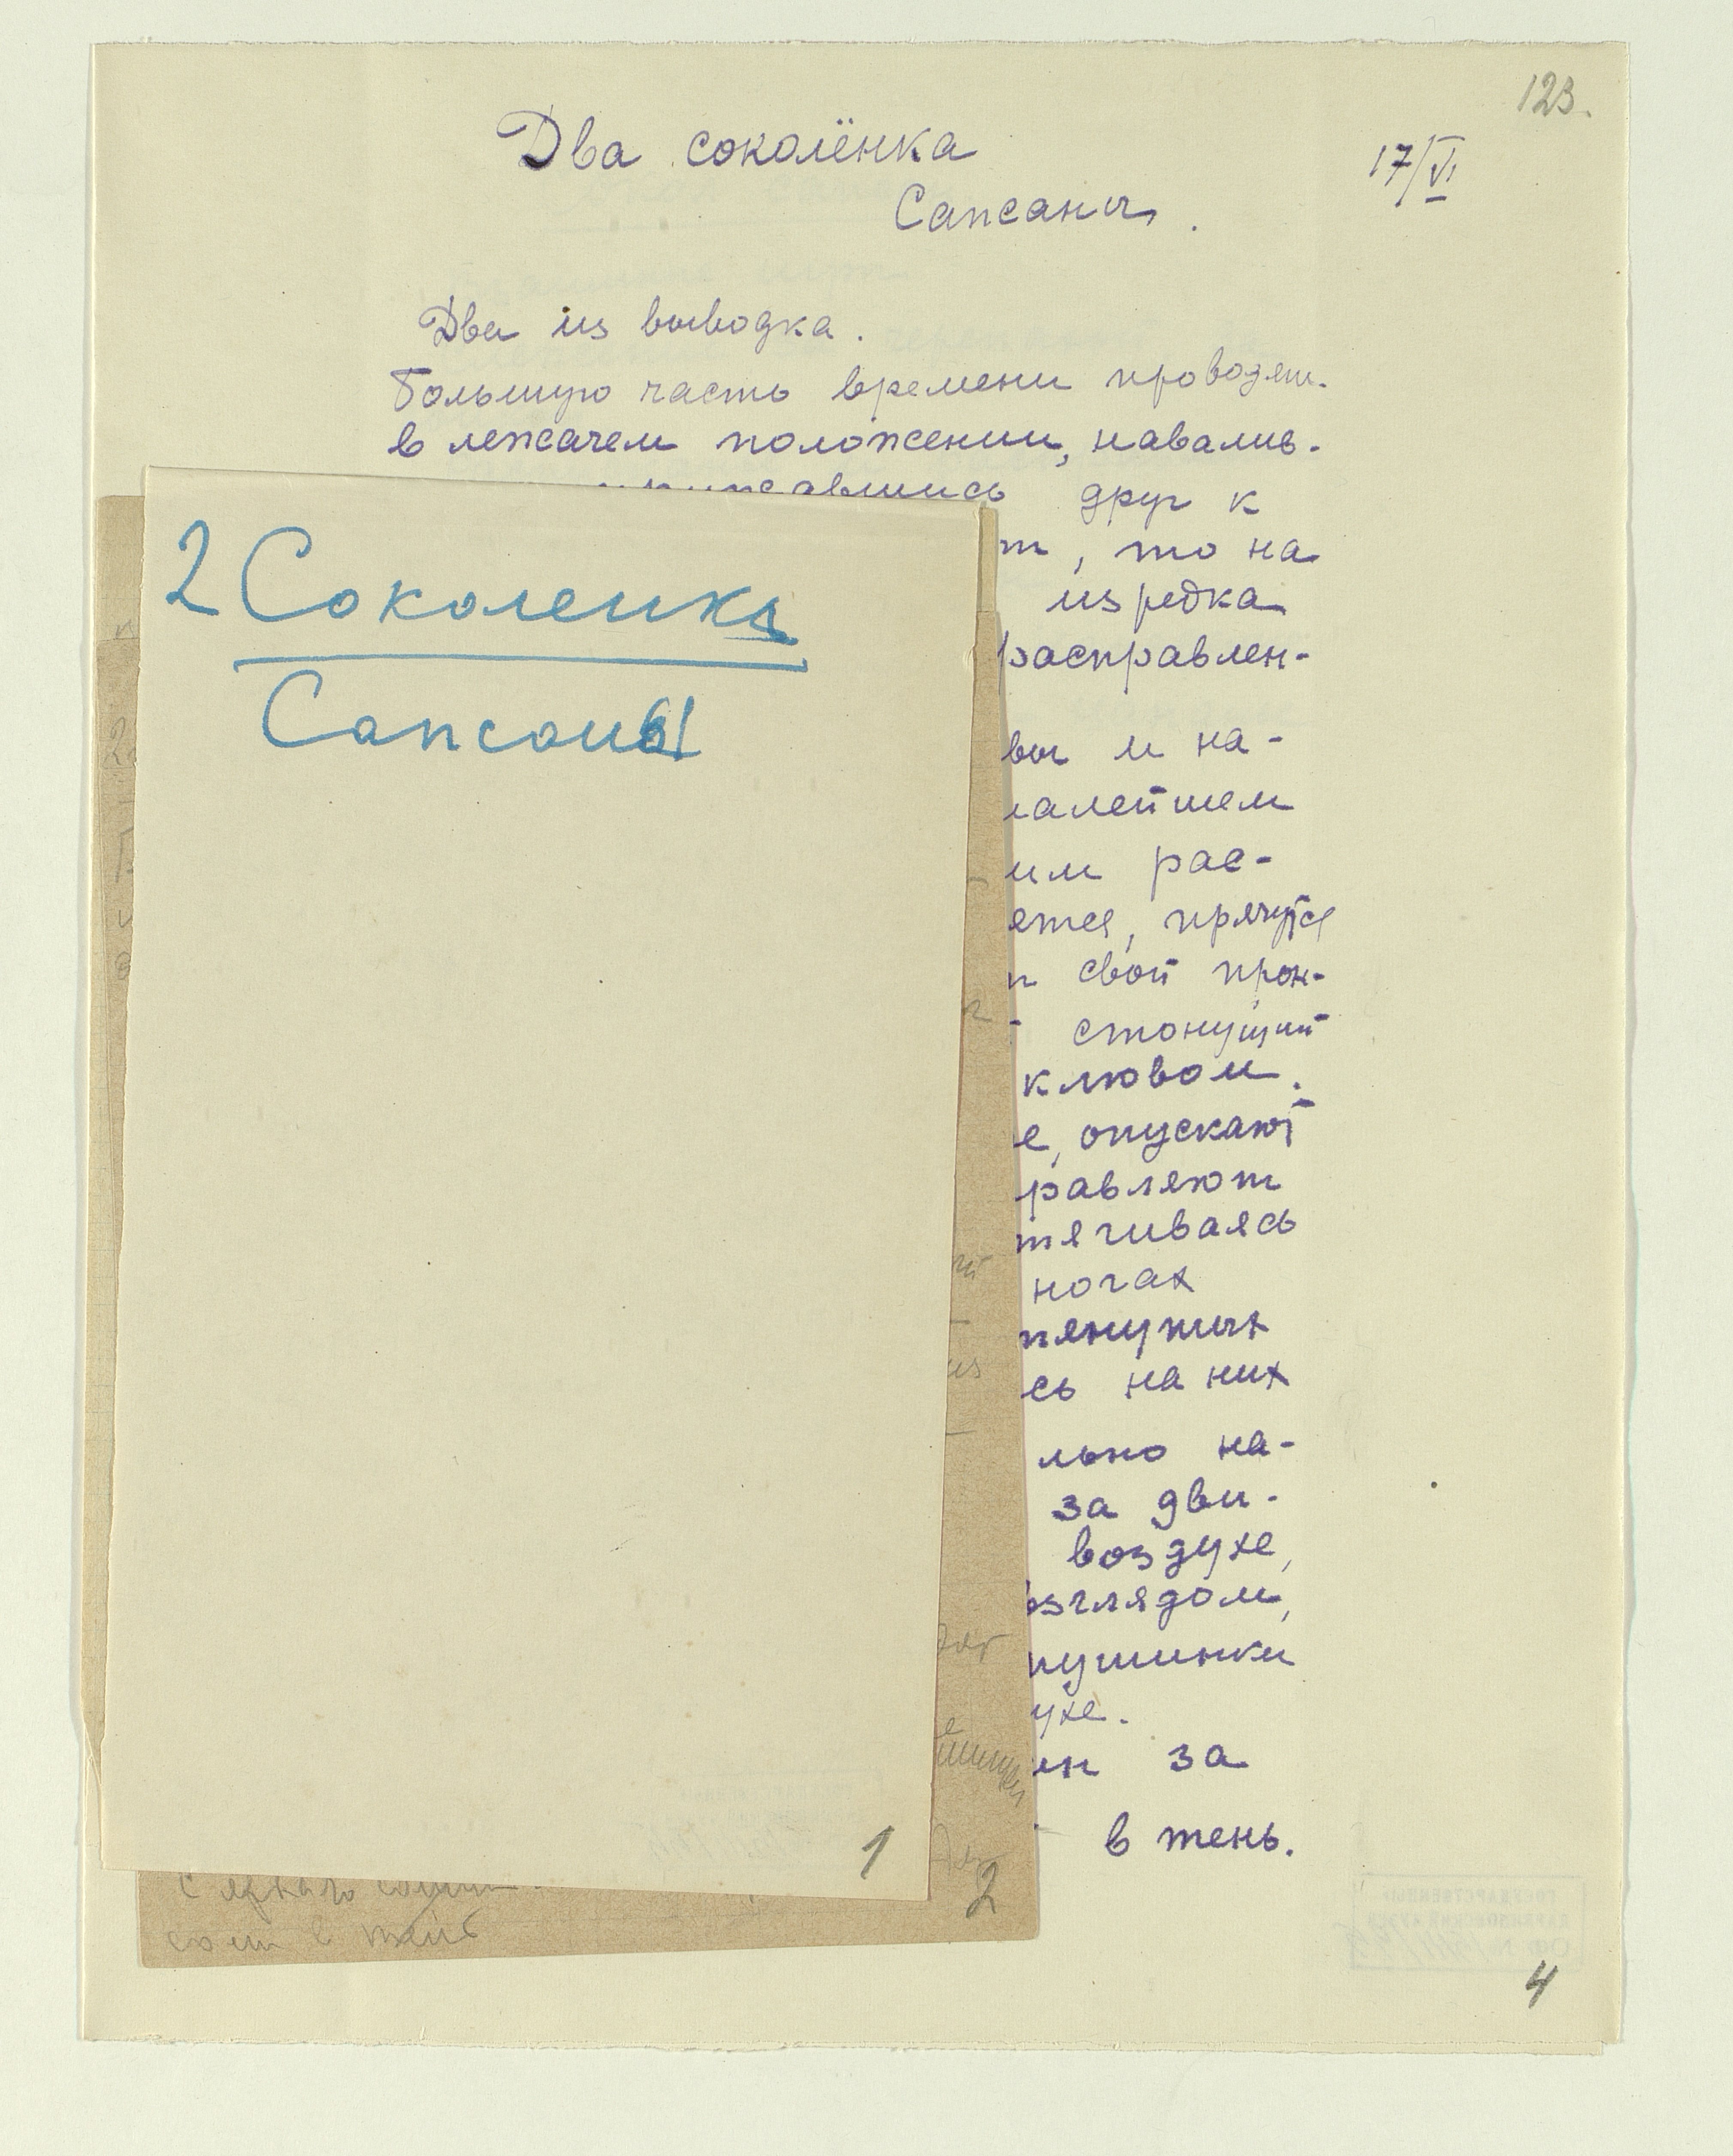 123.
17/VI
Два соколёнка
Сапсаны.
Два из выводка.
Большую часть времени проводят.
в лежачем положении, навалив-
друг к
т, то на
изредка
расправлен-
вы и на-
алейшем
им рас-
ется, прячутся
свой прон-
стонущий
клювом.
е, опускают
равляют
тягиваясь
ногах
тянутых
сь на них
льно на-
за дви-
воздухе,
взглядом,
пушинки
ухе.
за
в тень.
4
2 Соколенка
Сапсаны
1
2